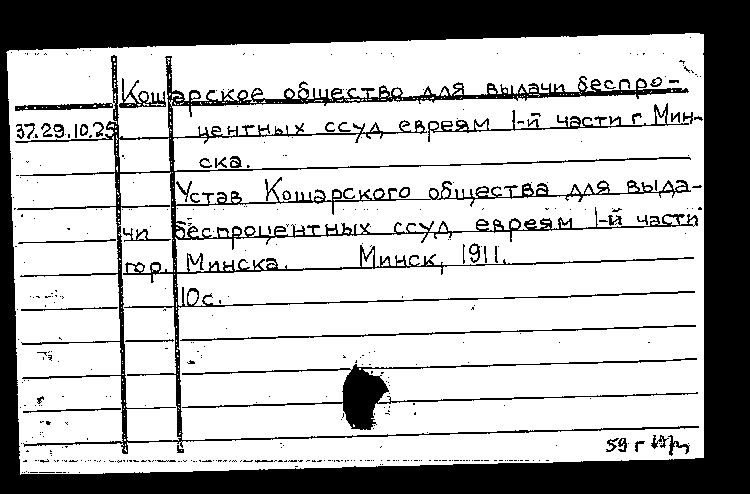 Кошарское общество для выдачи беспро-
37.29.10.25 центных ссуд евреям 1-й части г. Мин-
ска.
Устав Кошарского общества для выда-
чи беспроцентных ссуд евреям 1-й части
гор. Минска. Минск, 1911.
10с.
59 г